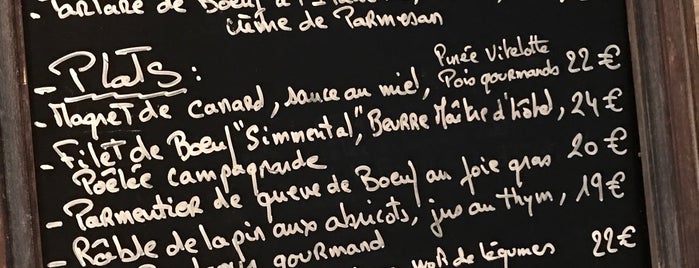 - Tartare de Boeuf à l'
crème de Parmesan
- Plats :
Purée Vitelotte
- Magret de canard, sauce au miel, Pois gourmands 22€
- Filet de Boeuf "Simmental", Beurre Maître d'hôtel, 24€
Poêlée campagnarde
- Parmentier de queue de Boeuf au foie gras 20€
- Râble de lapin aux abricots, jus au thym, 19€
gourmand
wok de légumes 22€